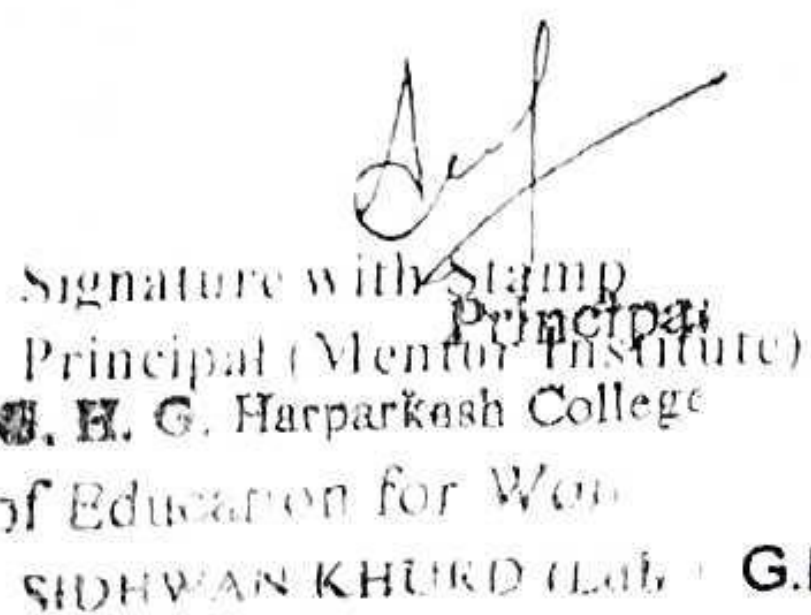 Signature with Stamp
Principal
Principal (Mentor Institute)
G. H. G. Harparkash College
of Education for Wom
SIDHWAN KHURD (Ldh G.